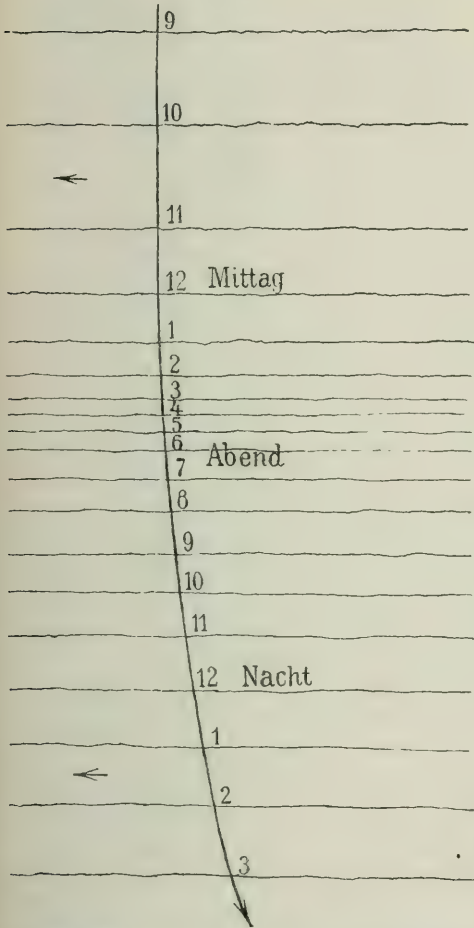 9
10
11
12 Mittag
1
2
3
4
5
6 Abend
7
8
9
10
11
12 Nacht
1
2
3